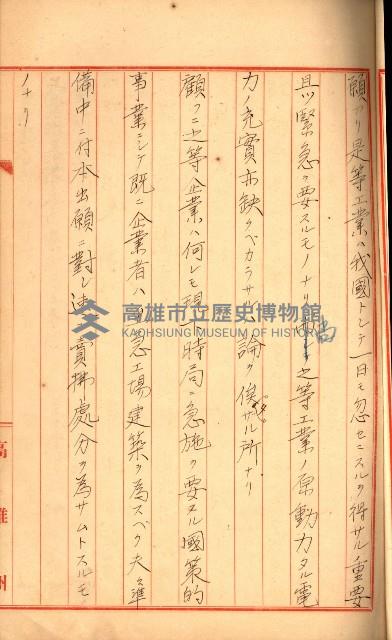 願アリ是等工業ハ我國トシテ一日モ忽セニスルヲ得サル重要
且ツ緊急ヲ要スルモノナリ尚之等工業ノ原動力タル電
力ノ充實亦缺クベカラサル論ヲ俟タサル所ナリ
顧フニ之等企業ハ何レモ現時局ニ急施ヲ要スル國策的
事業ニシテ既ニ企業者ハ急工場建築ヲ為スベク夫々準
備中ニ付本出願ニ對シ速賣拂處分ヲ為サムトスルモ
ノナリ
高雄州
高雄市立歷史博物館
KAOHSIUNG MUSEUM OF HISTORY